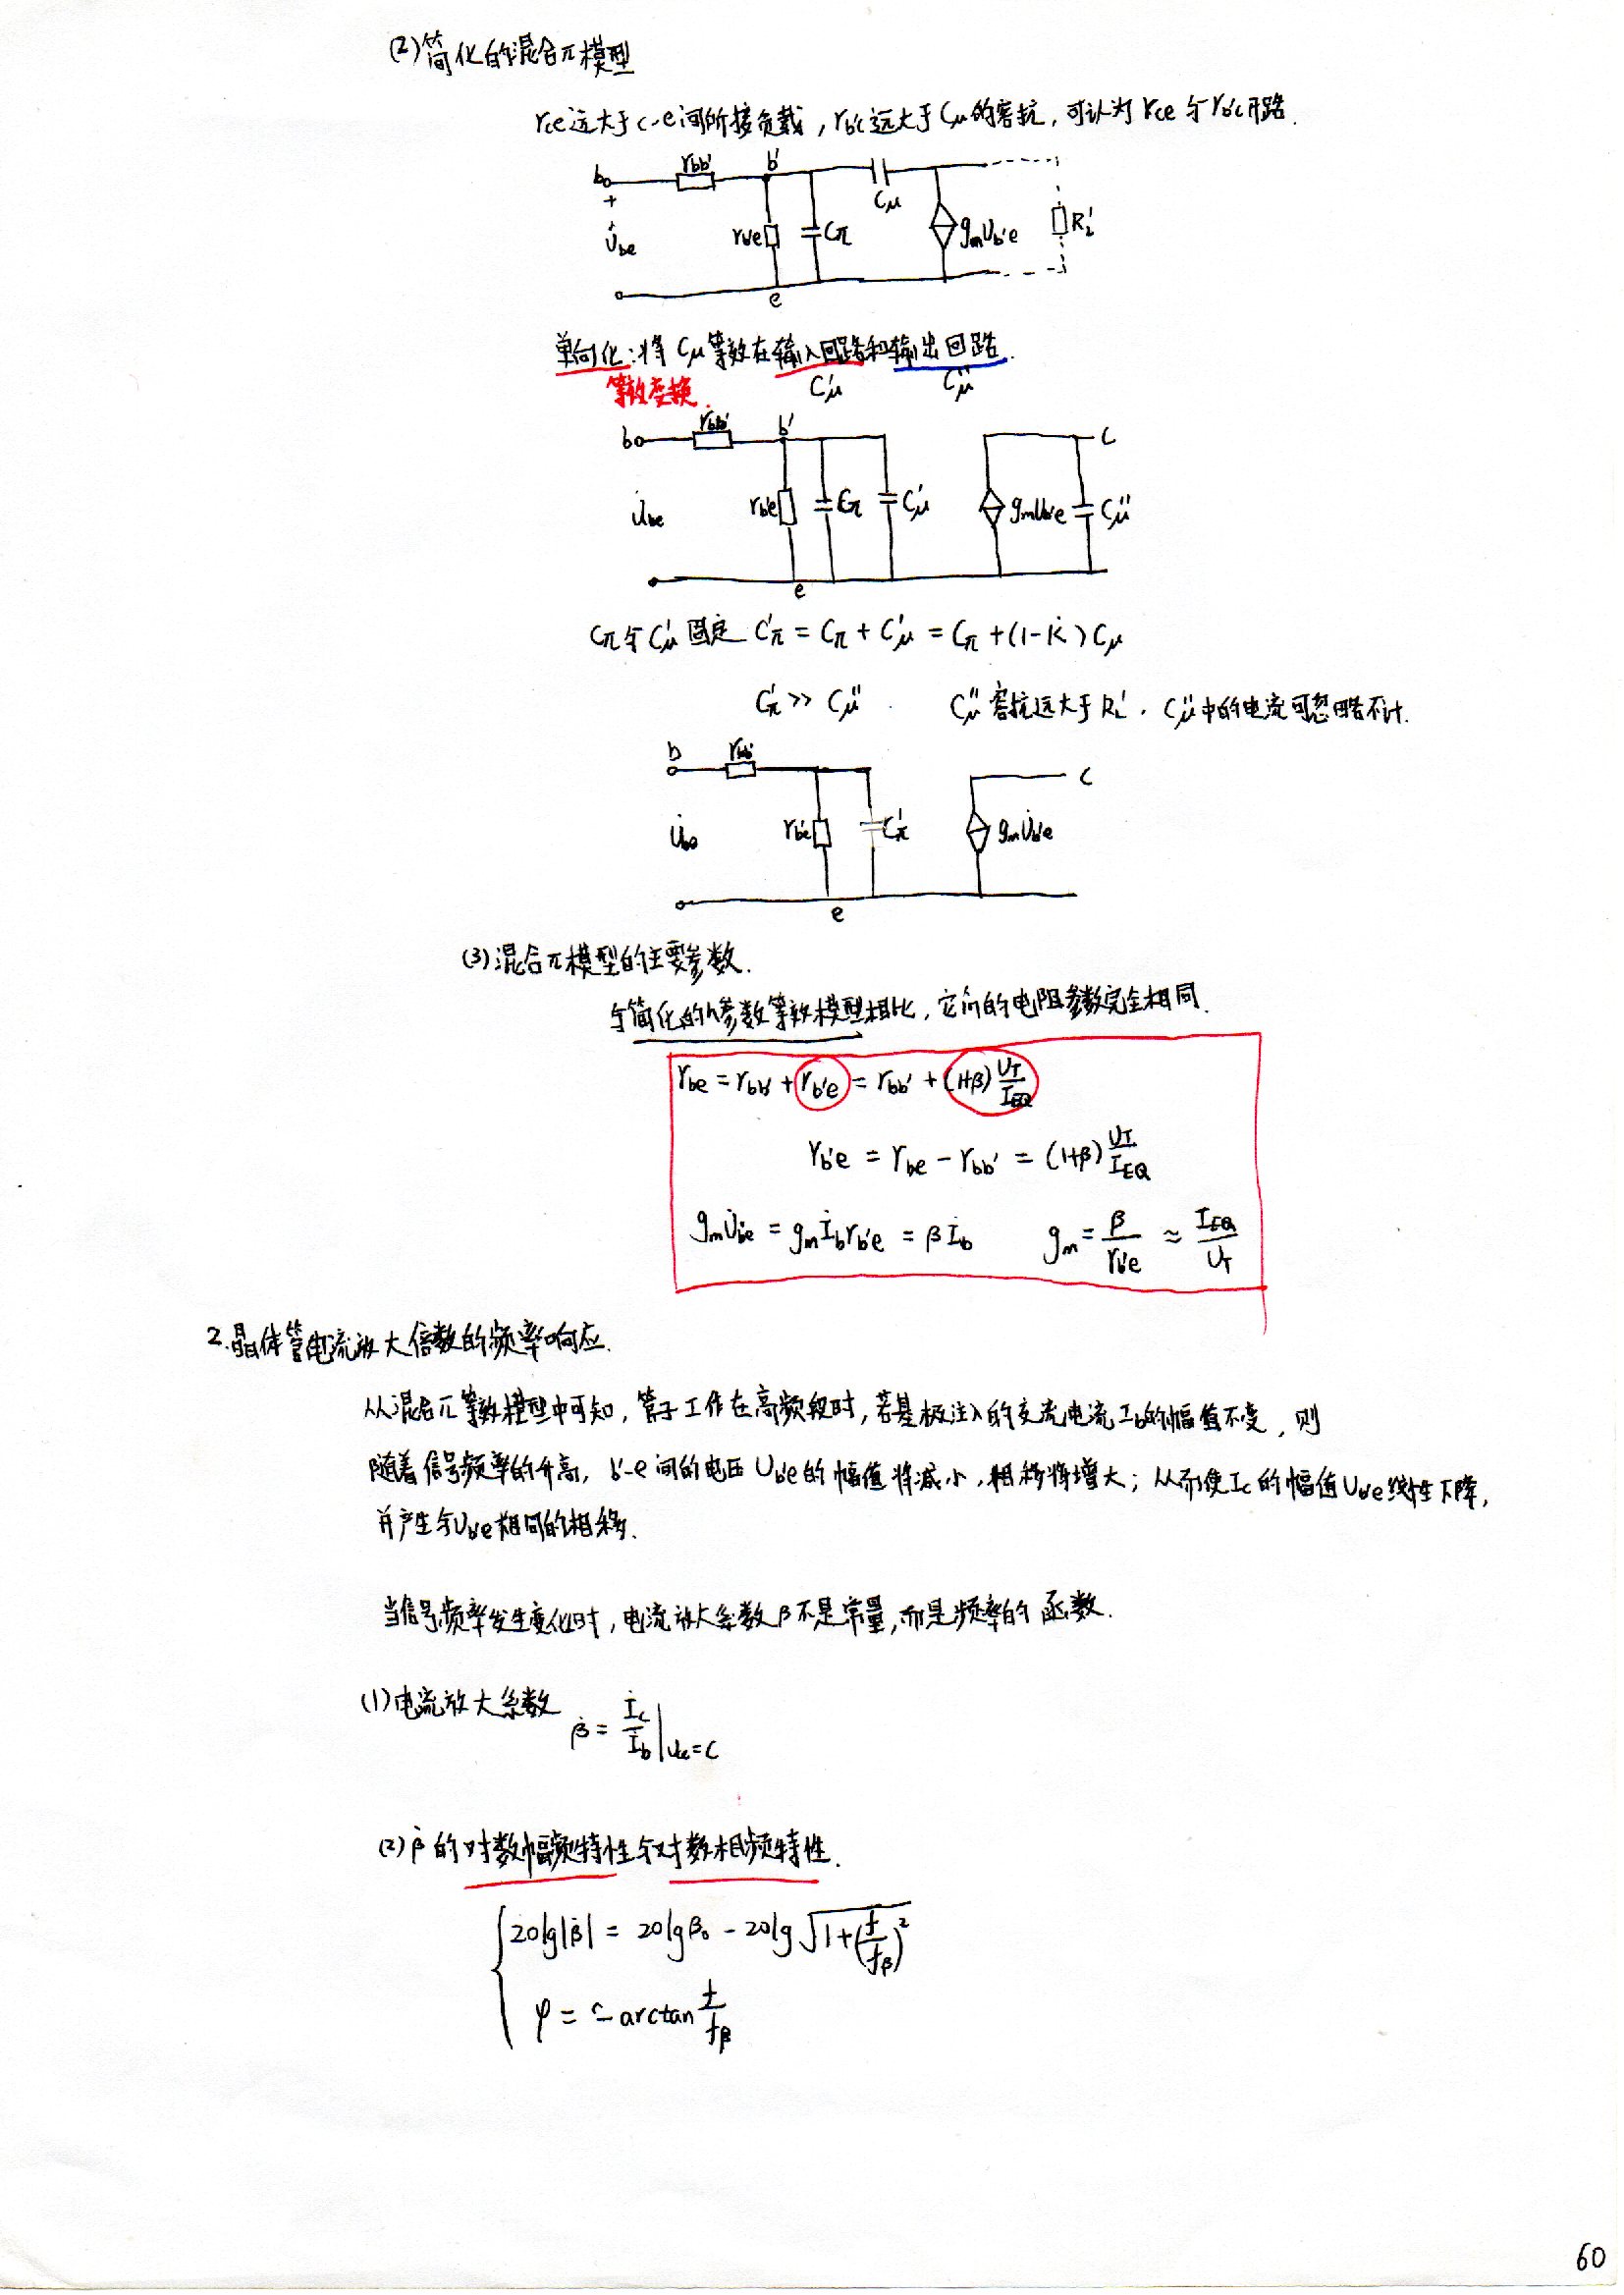 (2)简化的混合π模型
rce远大于c-e间所接负载，rb'c远大于Cμ的容抗，可认为rce与rb'c开路.
b
rbb'
b'
Cμ
+
U̇be
rb'e
Cπ
gmU̇b'e
RL'
e
单向化：将Cμ等效在输入回路和输出回路.
等效变换.
Cμ'
Cμ''
b
rbb'
b'
c
U̇be
rb'e
Cπ
Cμ'
gmU̇b'e
Cμ''
e
Cπ与Cμ'固定 Cπ' = Cπ + Cμ' = Cπ + (1-K̇)Cμ
Cπ' >> Cμ''. Cμ''容抗远大于RL'，Cμ''中的电流可忽略不计.
b
rbb'
c
U̇be
rb'e
Cπ'
gmU̇b'e
e
(3)混合π模型的主要参数.
与简化的h参数等效模型相比，它们的电阻参数完全相同.
rbe = rbb' + rb'e = rbb' + (1+β) UT/IEQ
rb'e = rbe - rbb' = (1+β) UT/IEQ
gmU̇b'e = gmİbrb'e = βİb  gm = β/rb'e ≈ IEQ/UT
2.晶体管电流放大倍数的频率响应.
从混合π等效模型中可知，管子工作在高频段时，若基极注入的交流电流Ib的幅值不变，则
随着信号频率的升高，b'-e间的电压Ub'e的幅值将减小，相移将增大；从而使Ic的幅值Ub'e线性下降，
并产生与Ub'e相同的相移.
当信号频率发生变化时，电流放大系数β不是常量，而是频率的函数.
(1)电流放大系数 β̇ = İc/İb |Uce=C
(2)β̇的对数幅频特性与对数相频特性.
20lg|β̇| = 20lgβ0 - 20lg√(1+(f/fβ)²)
φ = -arctan f/fβ
60